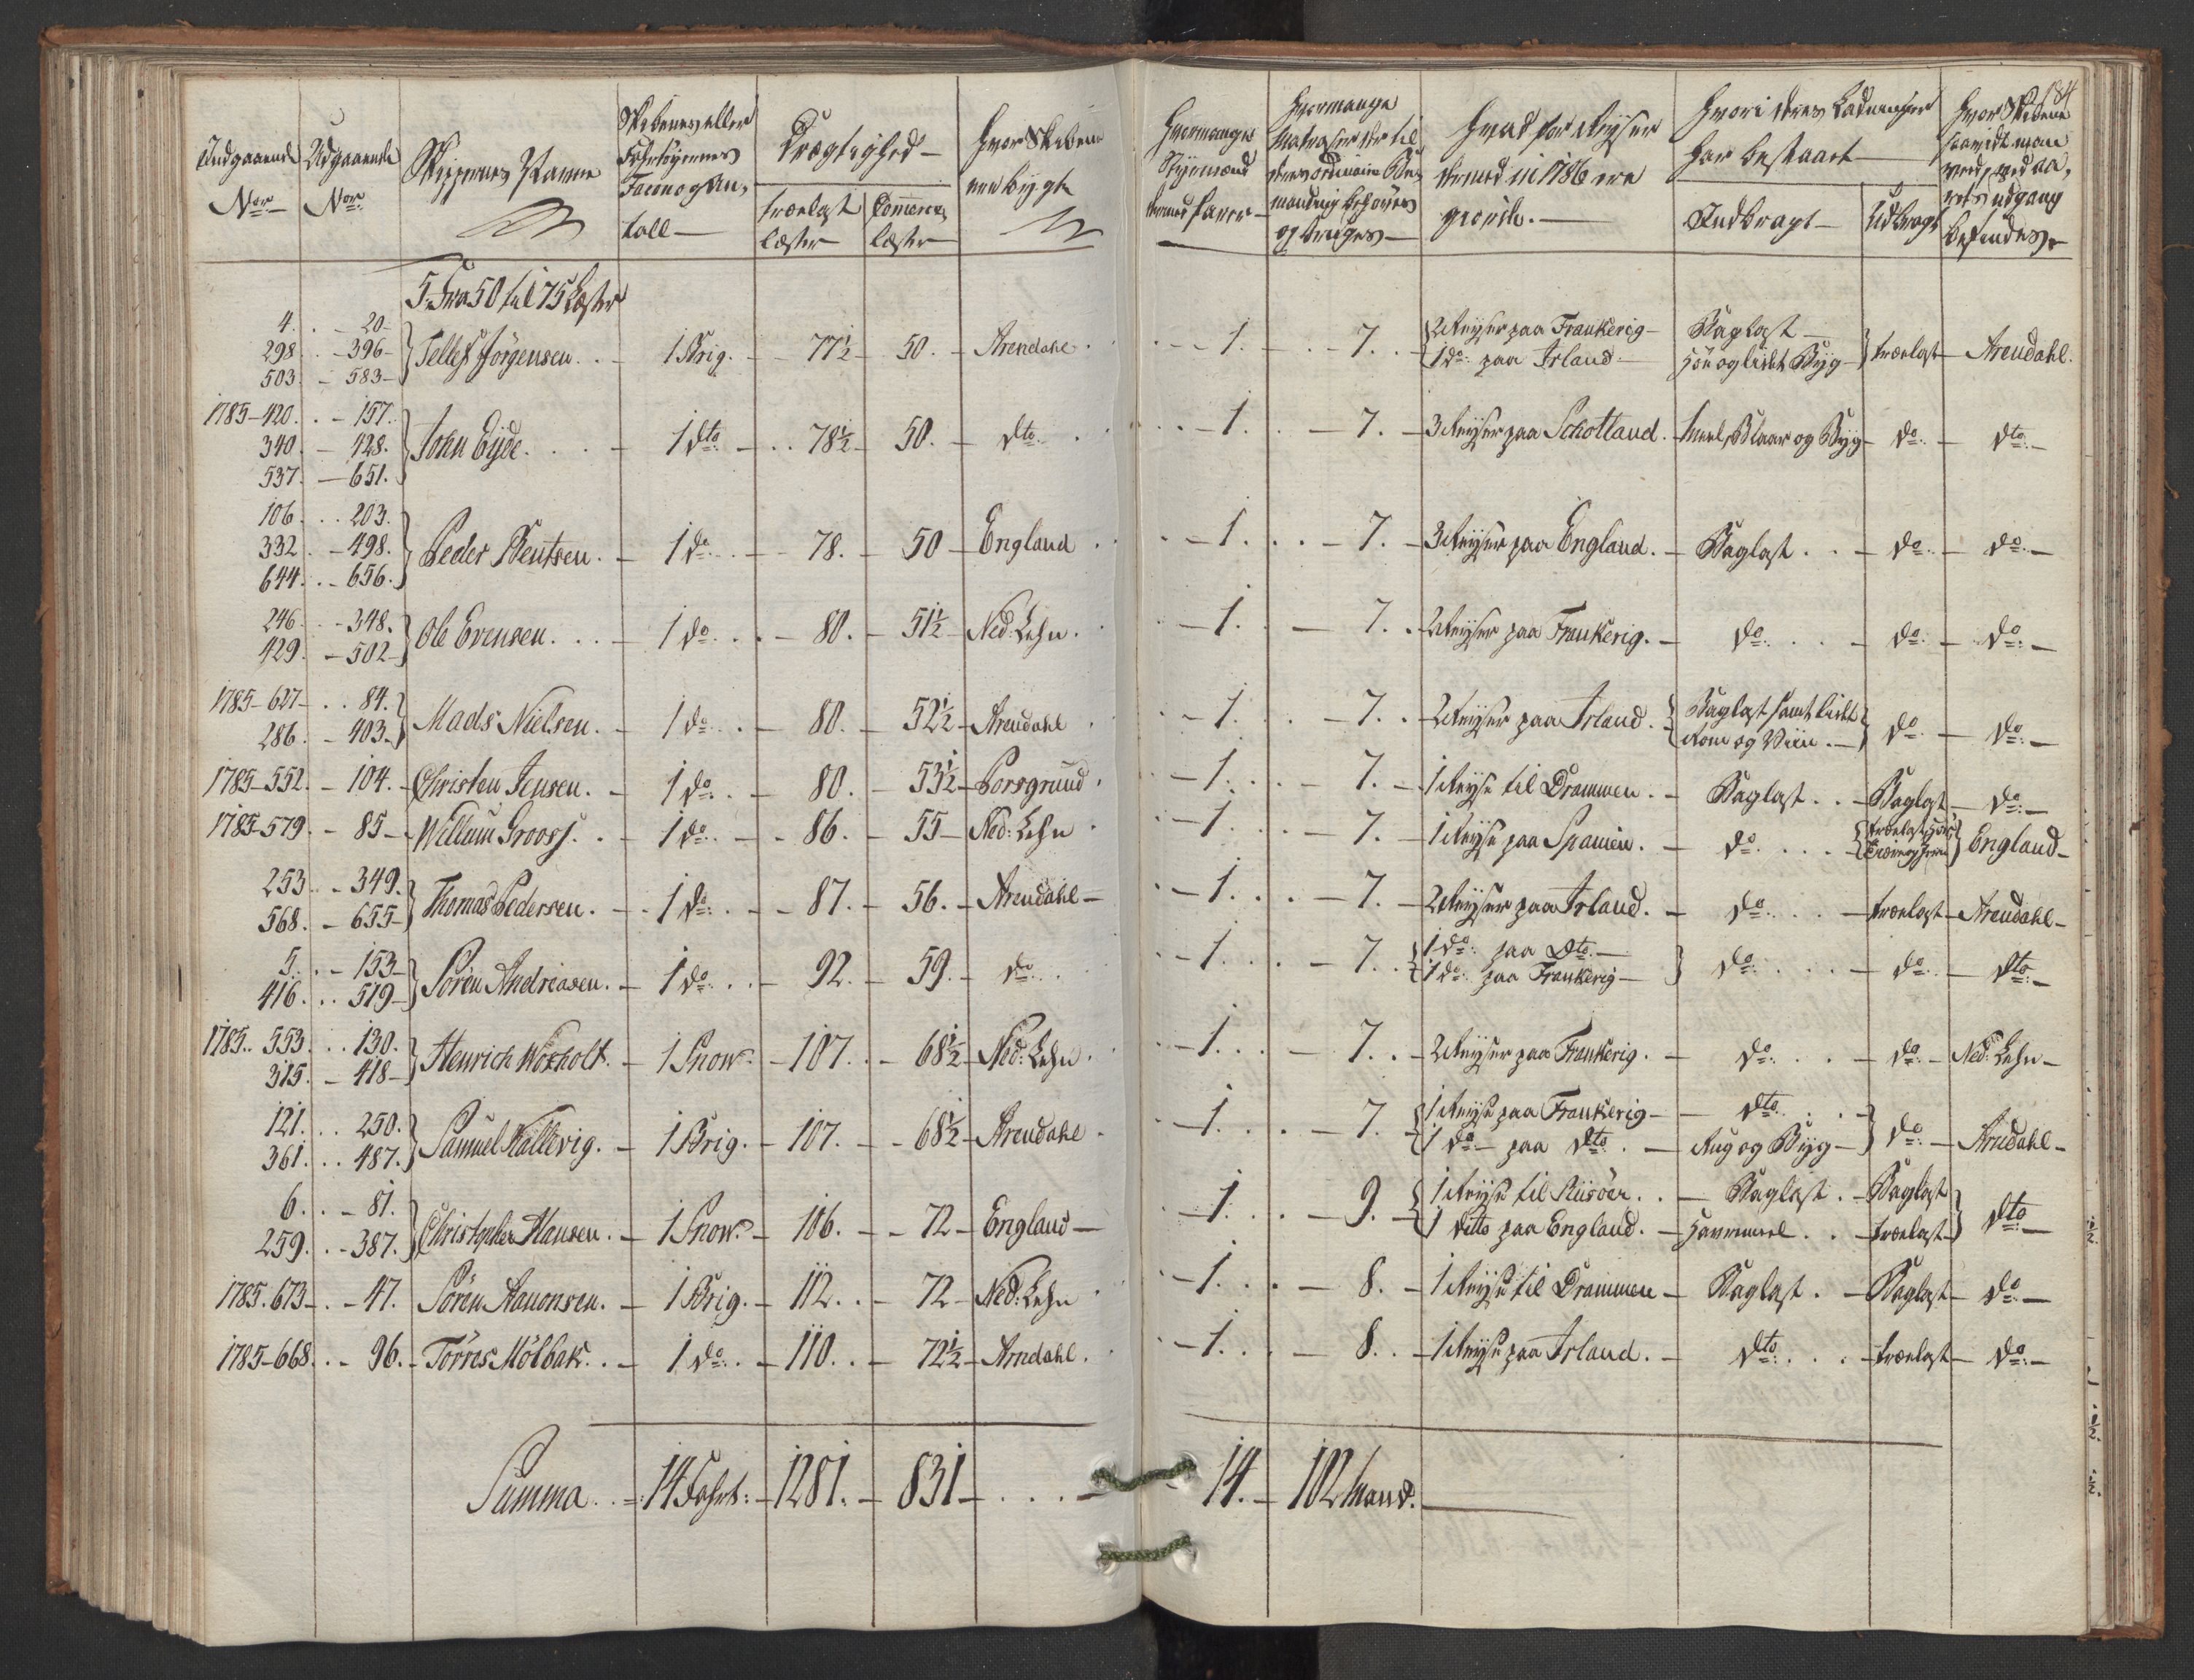 184
Indgaaende Nor:
Udgaaende Nor:
Skippernes Navne
Skibenes eller Fahrtöyernes Facon og Antall
Drægtighed
Trælast læster
Commerce læster
Hvor Skibene ere bygt
Hvormange Styrmænd dermed farer
Hvormange Matroser der til deres ordinaire Bemanding behöves og bruges
Hvad for Reyser dermed in 1786 ere giorte
Hvori deres Ladninger har bestaaet
Indbragt
Udbragt
Hvor Skibene saavidt man veed, ved Aarets udgang befindes
5. Fra 50 til 75 Læster
4. 298. 503. 20 396 583 Tellef Jörgensen. 1 Brig. 77½ 50. Arendahl. 1. 7. 2 Reyser paa Frankerig 1 do: paa Irland Baglast Trælast Arendahl.
1785-420. 340. 537. 157. 428. 651. John Eyde. 1 dto 78½ 50. dto. 1. 7. 3 Reyser paa Schottland. og Byg do. dto.
106. 332. 644. 203. 498. 656. Peder Bentsen. 1 do 78. 50 England 1. 7. 3 Reyser paa England. Baglast. do. do.
246. 429. 348. 502 Ole Evensen. 1 do. 80. 51½ Ned: Lehn. 1. 7. 2 Reyser paa Frankerig. do. do. do.
1785-627 286. 84. 403. Mads Nielsen. 1 do. 80. 52½ Arendahl 1. 7. 2 Reyser paa Irland. Baglast samt lidet Rom og Viin. do do.
1785-552. 104. Christen Jensen. 1 do. 80. 53½ Porsgrund. 1. 7. 1 Reyse til Drammen. Baglast. Baglast do.
1785-579. 85 Willum Grooss. 1 do. 86. 55 Ned: Lehn. 1. 7. 1 Reyse paa Spanien. do. England
253. 568. 349. 655 Thomas Pedersen. 1 do. 87. 56. Arendahl 1. 7. 2 Reyser paa Irland. do. Trælast Arendahl
5. 416. 153 519 Sören Andreasen. 1 do. 92. 59. do. 1. 7. 1 do: paa Dto. 1 do: paa Frankerig do. do. dto.
1785. 553. 315. 130. 418 Henrich Woxholt. 1 Snow. 107. 68½ Ned: Lehn. 1. 7. 2 Reyser paa Frankerig. do. do. Ned: Lehn
121. 361. 250. 487. Samuel Kallevig. 1 Brig. 107. 68½ Arendahl. 1. 7. 1 Reyse paa Frankerig 1 do paa dto. dto. Rug og Byg do. Arendahl
6. 259. 81. 387. Christopher Hansen. 1 Snow. 106. 72 England 1. 9. 1 Reyse til Riisöer. 1 ditto paa England. Baglast. Baglast Trælast dto
1785. 673 47. Sören Aanonsen. 1 Brig. 112. 72 Ned: Lehn 1. 8. 1 Reyse til Drammen Baglast. Baglast do.
1785-668. 96. Törres Mölbak. 1 do. 110. 72½ Arndahl. 1. 8. 1 Reyse paa Irland. dto. Trælast do.
Summa 14 Fahrt: 1281. 831 14. 102 Mand.